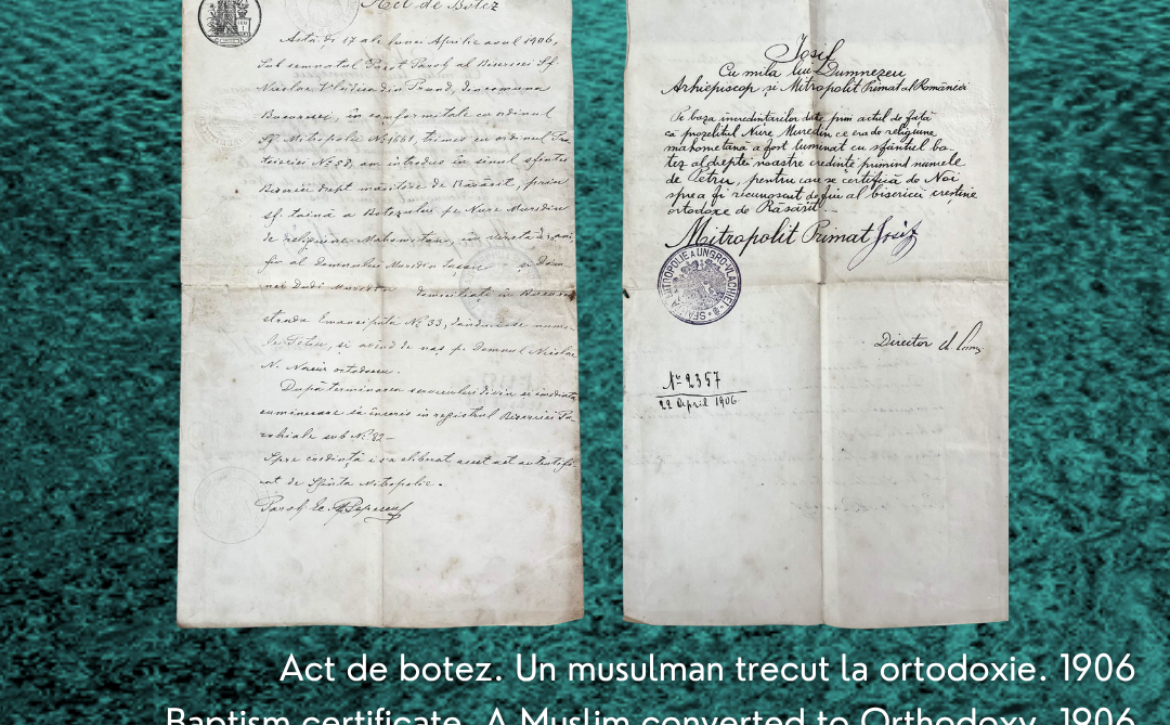 Act de Botez
Astă-di 17 ale lunei Aprilie anul 1906,
Sub semnatul Preot Paroh al Bisericei Sf.
Nicolae Vlădica din Prund, din comuna
Bucuresci, în conformitate cu ordinul
Sf. Mitropolii No 1661, trimes cu ordinul Pro
toieriei No 58, am introdus în sînul sfintei
Biserici drept măritóre de Răsărit, prin
sf. taină a Botezului pe Nure Muredin
de religiune Mahometană, în
fiu al Domnului Muredin și a Dom-
nei Muredin domiciliați în Bucuresci
strada Emancipata No 33, dându-i-se nume
le Petru, și avînd de naș pe Domnul Nicolae
N. ortodocsu.
După terminarea serviciului divin
sa înscris in registrul Bisericei Pa
rohiale sub No 22-
Spre credință i s'a eliberat acest act autentifi-
cat de Sfînta Mitropolie.
Paroh Ic.
Iosif
Cu mila lui Dumnezeu
Arhiepiscop și Mitropolit Primat al României
Pe baza incredintarilor date prin actul de față
că prozelitul Nure Muredin ce era de religiune
mahometană a fost luminat cu sfântul bo-
tez al dreptei noastre credințe primind numele
de Petru, pentru care se certifică de Noi
spre a fi recunoscut de fiu al bisericii creștine
ortodoxe de Răsărit.
Mitropolit Primat Iosif
SFÂNTA MITROPOLIE A UNGRO-VLACHIEI
Director
No 2357
22 April 1906.
Act de botez. Un musulman trecut la ortodoxie. 1906
Baptism certificate. A Muslim converted to Orthodoxy. 1906